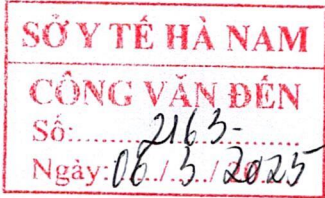 SỞ Y TẾ HÀ NAM
CÔNG VĂN ĐẾN
Số:.......2163-.......
Ngày: 06./.3./.2025